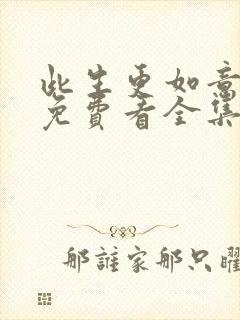 此生更如意
免費看全集
那誰家那只曜